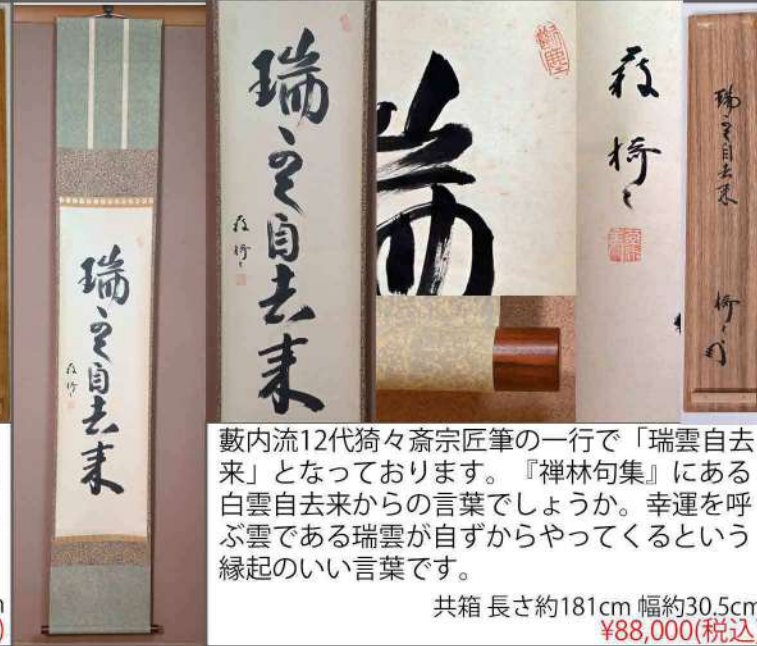 瑞雲自去来
薮 猗々
瑞雲自去来
薮 猗々
瑞
薮 猗々
瑞雲自去来
猗々
藪内流12代猗々斎宗匠筆の一行で「瑞雲自去
来」となっております。『禅林句集』にある
白雲自去来からの言葉でしょうか。幸運を呼
ぶ雲である瑞雲が自ずからやってくるという
縁起のいい言葉です。
共箱 長さ約181cm 幅約30.5cm
¥88,000(税込)